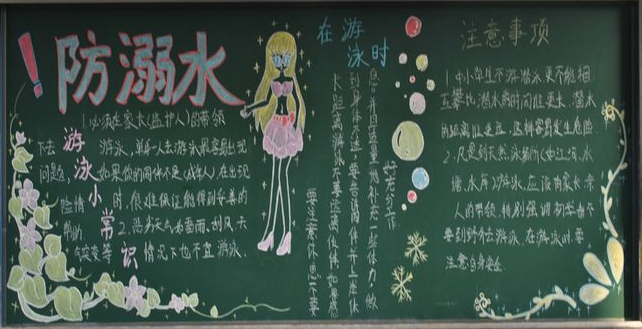 防溺水
游泳小常识
1.必须在家长(监护人)的带领
下去游泳,单身一人去游泳最容易出现
问题,如果你的同伴不是(成年人)在出现
险情时,很难保证能得到妥善的
帮助 2.恶劣天气如雷雨、刮风、天
气突变等情况下也不宜游泳.
在游泳时
注意事项
1.中小学生不游潜泳更不能相
互攀比,潜水的时间谁更长,潜水
的距离谁更远,这样容易发生危险
2.凡是到天然泳场所(如江河水
塘,水库)游泳,应该有家长亲
人的带领,特别强调初学者不
要到野外去游泳,在游泳时要
注意自身安全